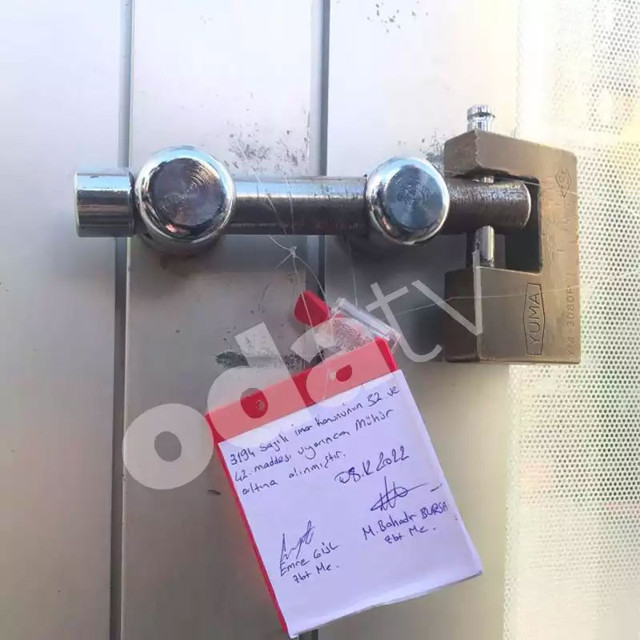 YUMA
odatv
3194 Sayılı imar kanununun 32 ve
42. maddesi uyarınca mühür
altına alınmıştır.
2022
Emre
M. Bahadır BURSA
Zbt Me.
Zbt Me.